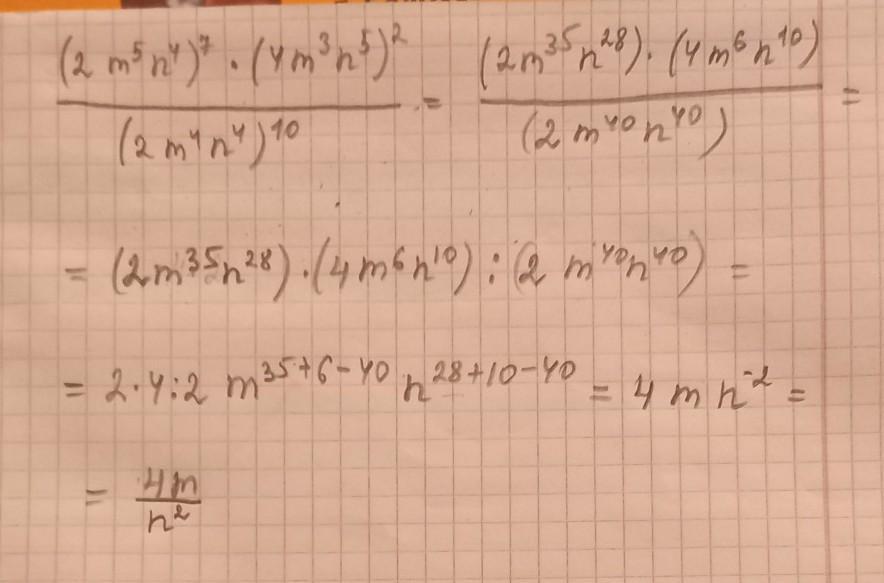 (2 m⁵n⁴)⁷ · (4m³n⁵)² / (2 m⁴n⁴)¹⁰ = (2m³⁵n²⁸) · (4m⁶n¹⁰) / (2 m⁴⁰n⁴⁰) =
= (2m³⁵n²⁸) · (4m⁶n¹⁰) : (2 m⁴⁰n⁴⁰) =
= 2·4:2 m³⁵⁺⁶⁻⁴⁰ n²⁸⁺¹⁰⁻⁴⁰ = 4 m n⁻² =
= 4m / n²